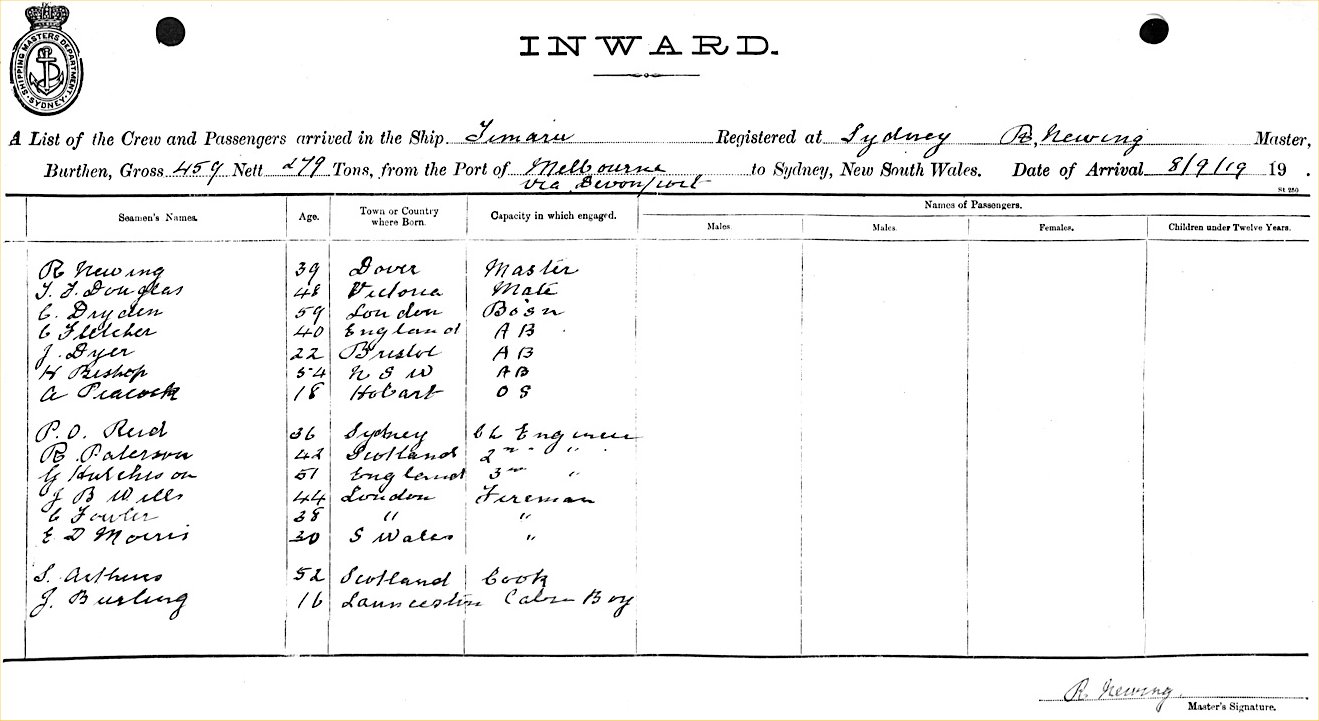 SHIPPING MASTERS DEPARTMENT. SYDNEY.
INWARD.
A List of the Crew and Passengers arrived in the Ship Timaru Registered at Sydney R. Newing Master,
Burthen, Gross 459 Nett 279 Tons, from the Port of Melbourne to Sydney, New South Wales. Date of Arrival 8/9/19 19 .
via Devonport
St 250
Seamen's Names. Age. Town or Country where Born. Capacity in which engaged. Names of Passengers.
Males. Males. Females. Children under Twelve Years.
R Newing 39 Dover Master
T. F. Douglas 48 Victoria Mate
C. Dryden 59 London Bosn
C Fletcher 40 England A B
J. Dyer 22 Bristol A B
H Bishop 54 N S W A B
A Peacock 18 Hobart O S
P. O. Reid 36 Sydney Ch Engineer
R. Paterson 42 Scotland 2nd "
G Hutchison 51 England 3rd "
J B Wills 44 London Fireman
C Fowler 38 " "
E D Morris 30 S Wales "
S. Arthurs 52 Scotland Cook
J. Burling 16 Launceston Cabin Boy
R. Newing.
Master's Signature.